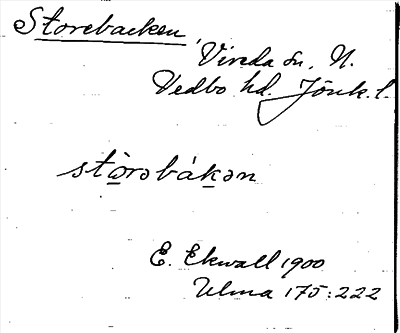 Storebacken,
Vireda sn, N.
Vedbo hd. Jönk. l.
stòrəbákən
E. Ekwall 1900
Ulma 175:222